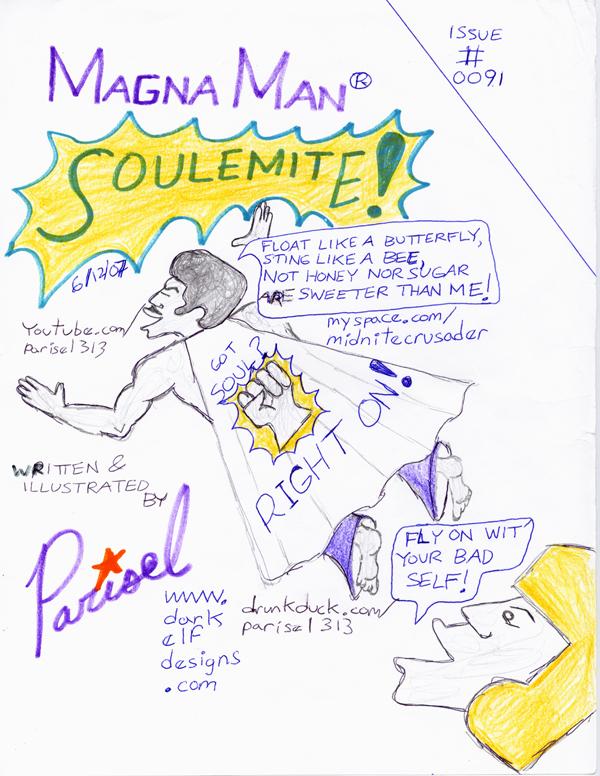 MAGNA MAN ®
ISSUE
#
0091
SOULEMITE!
6/12/07
FLOAT LIKE A BUTTERFLY,
STING LIKE A BEE,
NOT HONEY NOR SUGAR
ARE SWEETER THAN ME!
Youtube.com/
parisel313
myspace.com/
midnitecrusader
GOT
SOUL?
RIGHT ON!
WRITTEN &
ILLUSTRATED
BY
Parisel
FLY ON WIT'
YOUR BAD
SELF!
www.
dark
elf
designs
.com
drunkduck.com/
parisel313